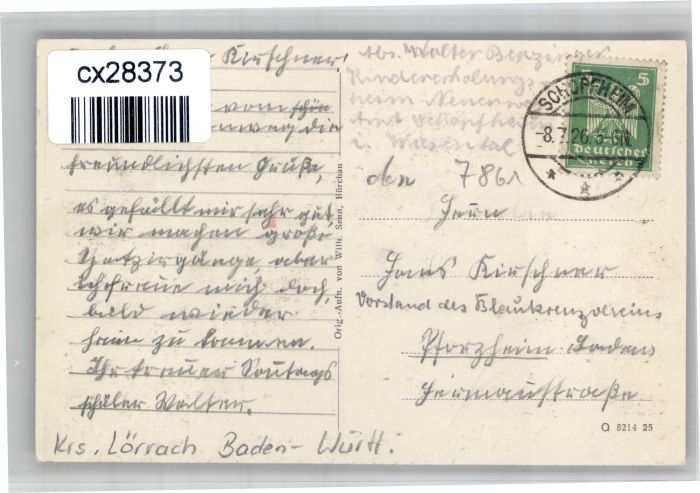 cx28373
Kirschner!
vom schön
die
freundlichsten Grüße,
es gefällt mir sehr gut,
wir machen große
Spaziergänge, aber
ich freue mich doch,
bald wieder
heim zu kommen.
Ihr treuer Sontags
schüler Walter.
Krs. Lörrach Baden-Württ.
Orig.-Aufn. von Wilh. Senn, Bürchau
Abs. Walter Benzinger
Kindererholungs-
heim Neuenweg
Amt Schopfheim
i. Wiesental
7861
SCHOPFHEIM
-8.7.26. 5-6N.
5
Deutsches
Reich
Herrn
Hans Kirschner
Vorstand des Blaukreuzvereins
Pforzheim Badens
Hermannstraße
Q 8214 25